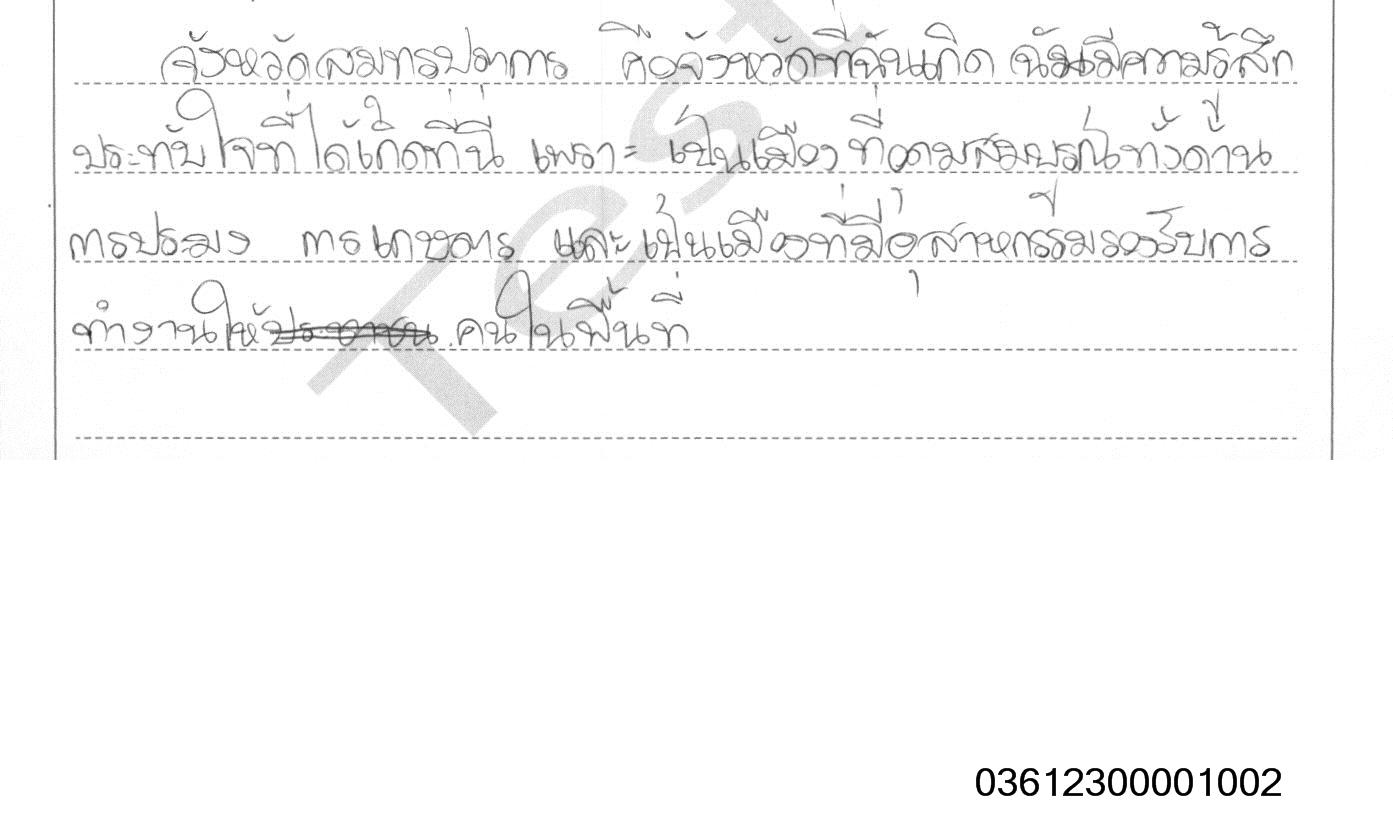 จังหวัดสมุทรปราการ คือจังหวัดที่ฉันเกิด ฉันมีความรู้สึก
ประทับใจที่ได้เกิดที่นี่ เพราะ เป็นเมือง ที่อุดมสมบูรณ์ทั้งด้าน
การประมง การเกษตร และเป็นเมืองที่มีอุสาหกรรมรองรับการ
ทำงานให้ คนในพื้นที่
Test
03612300001002